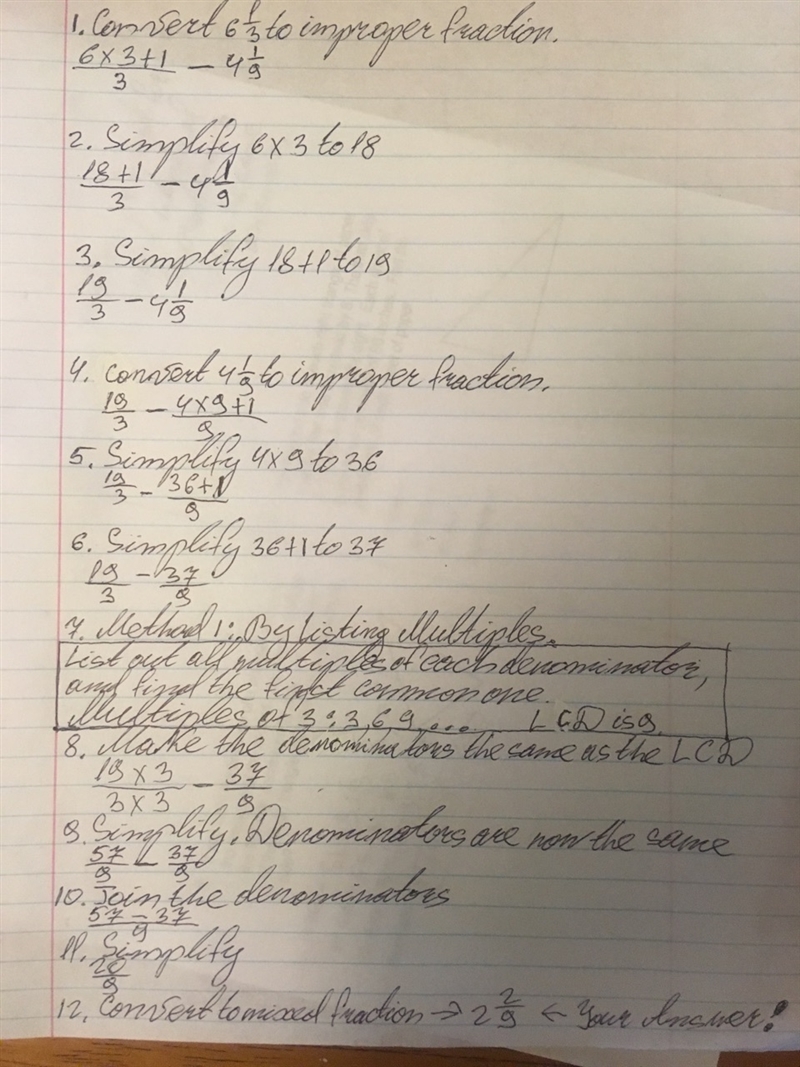 1. Convert 6 1/3 to improper fraction.
6x3+1/3 - 4 1/9
2. Simplify 6x3 to 18
18+1/3 - 4 1/9
3. Simplify 18+1 to 19
19/3 - 4 1/9
4. Convert 4 1/9 to improper fraction.
19/3 - 4x9+1/9
5. Simplify 4x9 to 36
19/3 - 36+1/9
6. Simplify 36+1 to 37
19/3 - 37/9
7. Method 1: By Listing Multiples.
List out all multiples of each denominator,
and find the first common one.
Multiples of 3: 3,6 9, ... LCD is 9.
8. Make the denominators the same as the LCD
19x3/3x3 - 37/9
9. Simplify. Denominators are now the same
57/9 - 37/9
10. Join the denominators
57-37/9
11. Simplify
20/9
12. Convert to mixed fraction → 2 2/9 ← Your Answer!